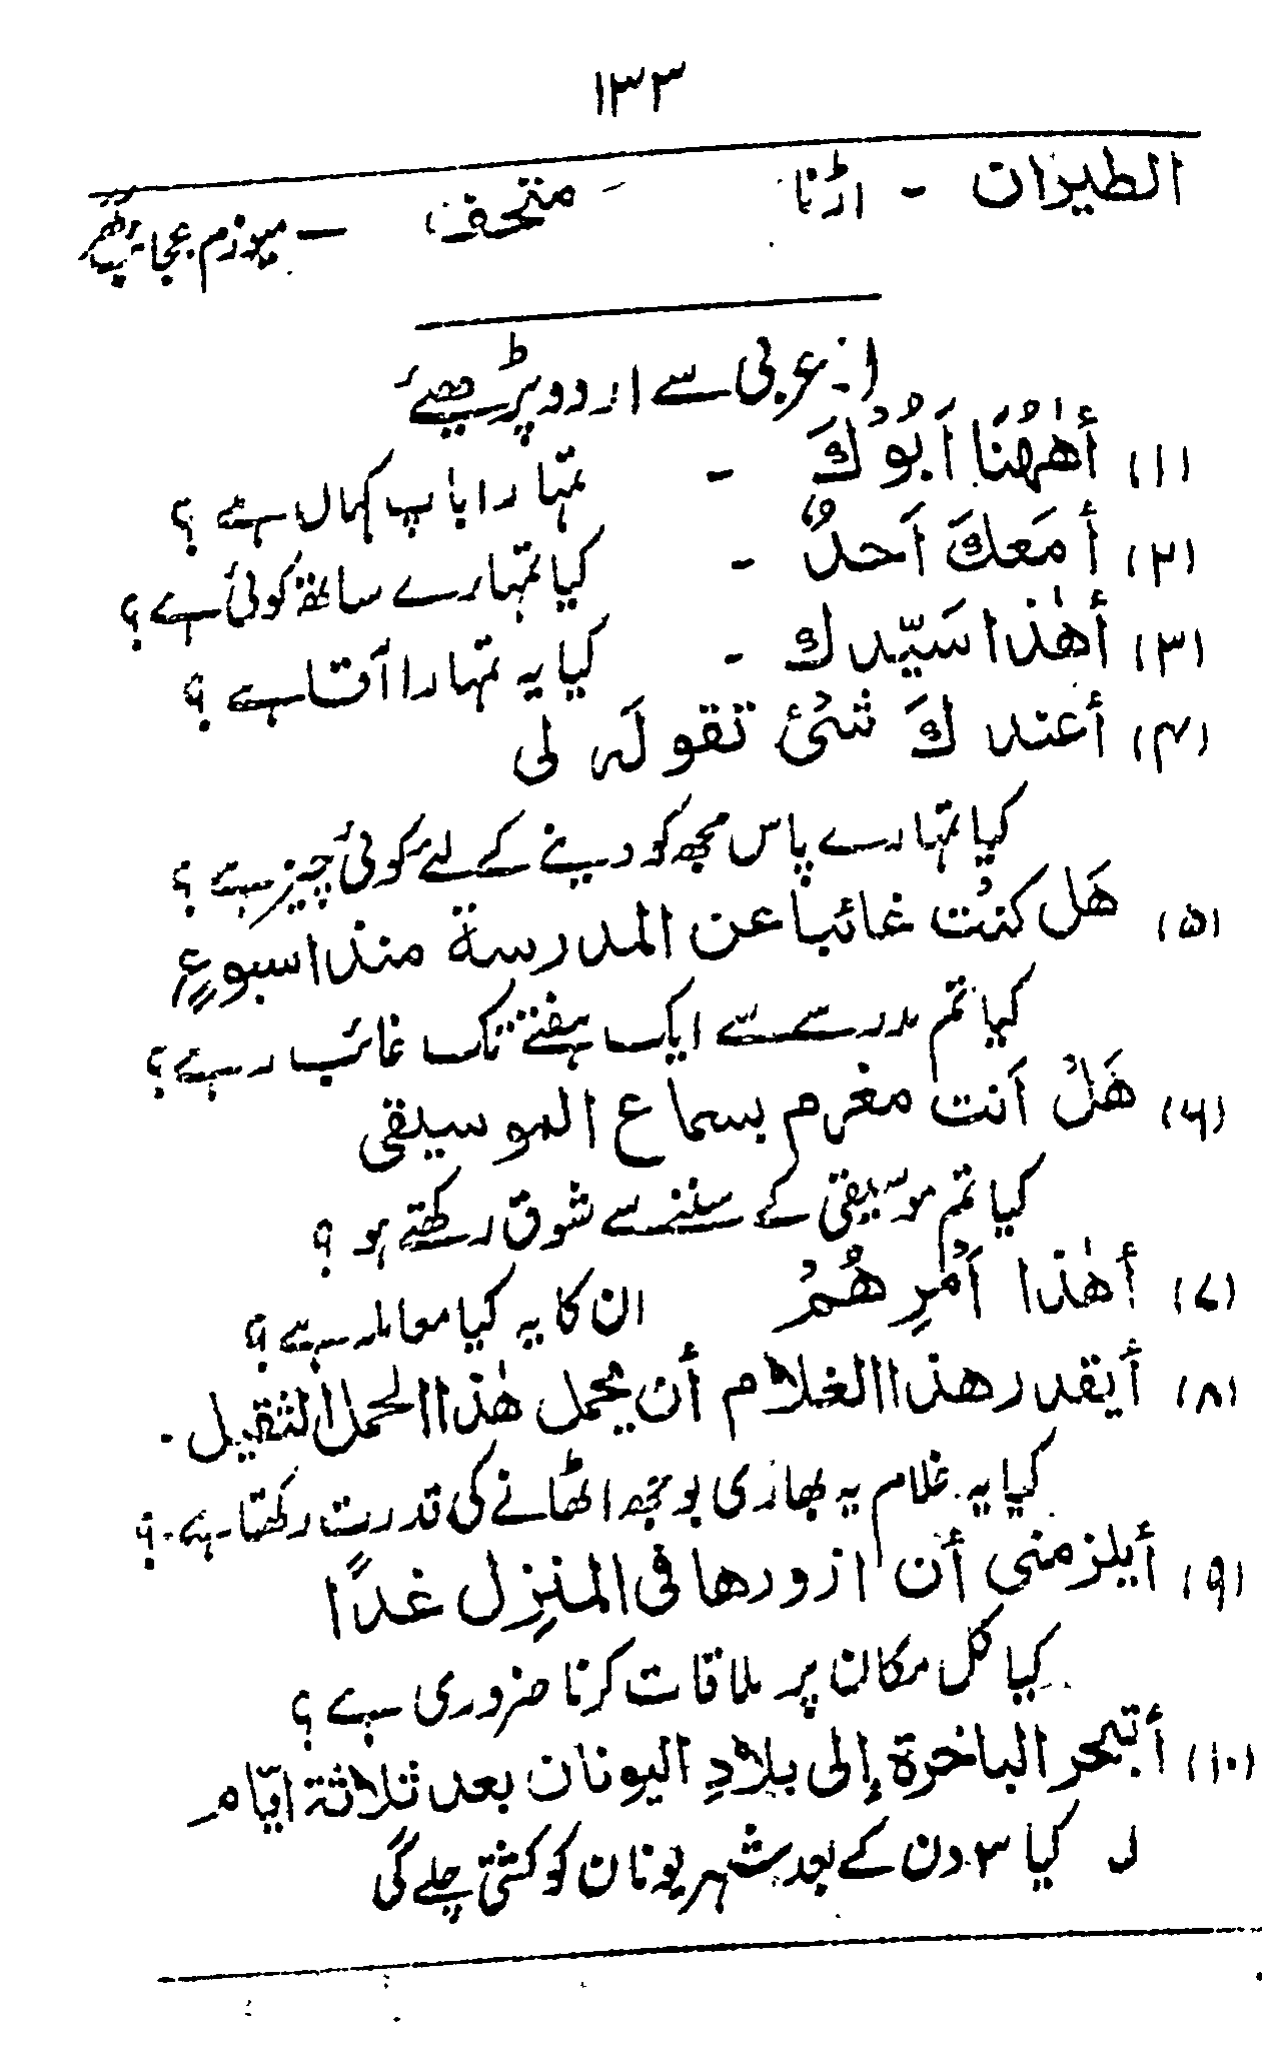 ۱۳۳
الطیران - اڑنا - متحف - میوزم عجائب گھر
۱ :- عربی سے اردو پڑھیئے
(۱) أهٰهُنَا اَبُوْكَ - تمہارا باپ کہاں ہے ؟
(۲) أ مَعكَ اَحدٌ - کیا تمہارے ساتھ کوئی ہے ؟
(۳) أهٰذا سَيّدك - کیا یہ تمہارا آقا ہے ؟
(۴) أعندكَ شئ تقولَہ لی
کیا تمہارے پاس مجھ کو دینے کے لئے کوئی چیز ہے ؟
(۵) هَل كنتُ غائبا عن المدرسة منذ اسبوعٍ
کیا تم مدرسے سے ایک ہفتے تک غائب رہے ؟
(۶) هَلْ اَنت مغرم بسماع الموسیقی
کیا تم موسیقی کے سننے سے شوق رکھتے ہو ؟
(۷) أهٰذا اَمْرِهُمْ ان کا یہ کیا معاملہ ہے ؟
(۸) أيقدر هذا الغلام أن يحمل هٰذا الحمل الثقيل .
کیا یہ غلام یہ بھاری بوجھ اٹھانے کی قدرت رکھتا ہے ؟
(۹) أيلزمنی أن ازورها فی المنزِل غدًا
کیا کل مکان پر ملاقات کرنا ضروری ہے ؟
(۱۰) أتبحر الباخرة إلی بلادِ اليونان بعد ثلاثة ايّام
ل کیا ۳ دن کے بعد شہر یونان کو کشتی چلے گی